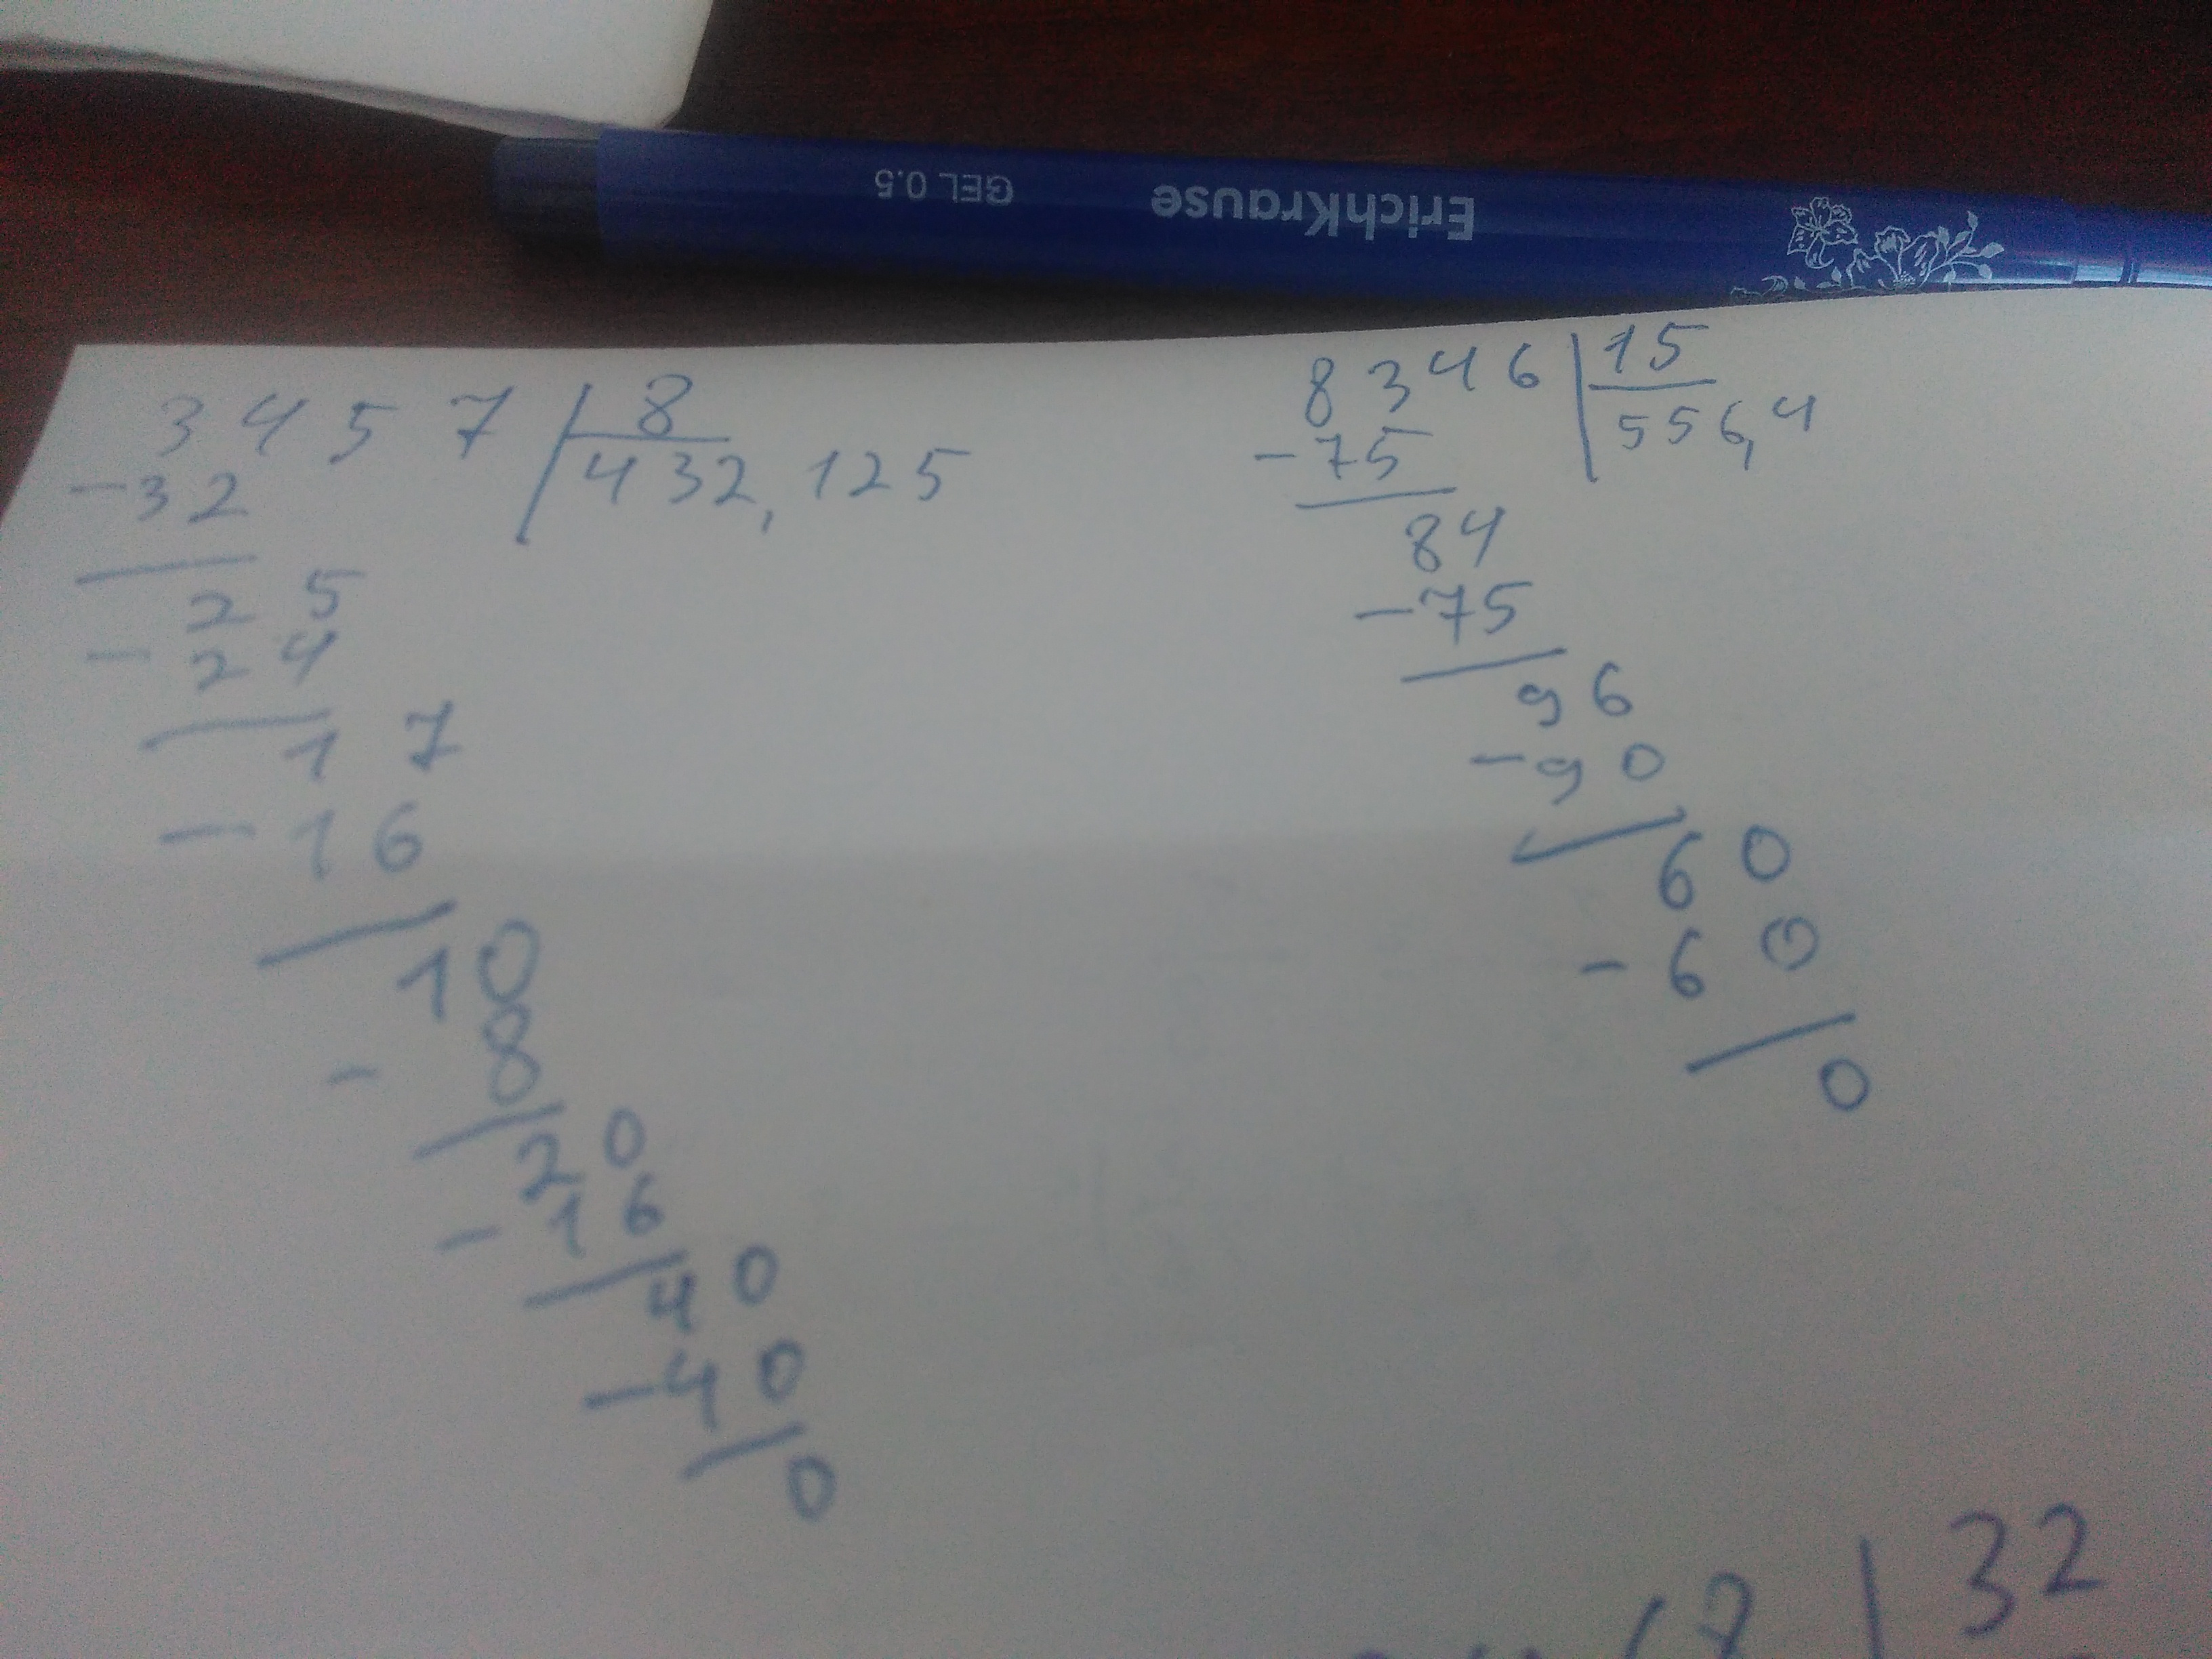 ErichKrause GEL 0.5
3457 8
-32 432,125
25
-24
17
-16
10
- 8
20
-16
40
-40
0
8346 15
-75 556,4
84
-75
96
-90
60
-60
0
32